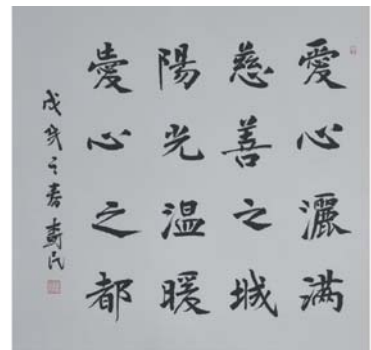 愛心灑滿
慈善之城
陽光温暖
愛心之都
戊戌之春壽民